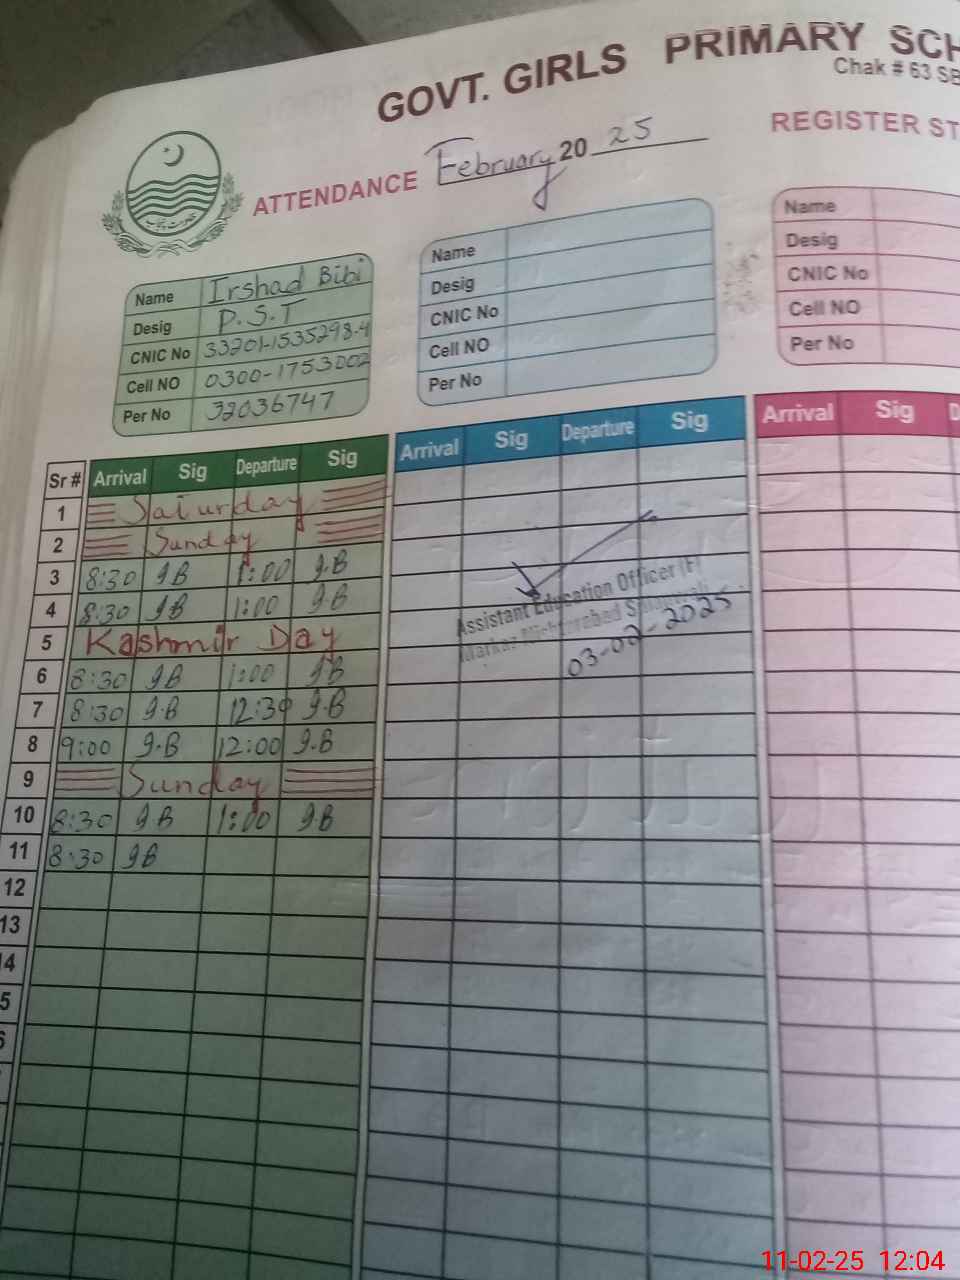 GOVT. GIRLS PRIMARY SCH
Chak # 63 SB
ATTENDANCE February 20 25
REGISTER ST
حکومت پنجاب
Name Irshad Bibi
Desig P.S.T
CNIC No 33201-1535298-4
Cell NO 0300-1753002
Per No 32036747
Name
Desig
CNIC No
Cell NO
Per No
Name
Desig
CNIC No
Cell NO
Per No
Sr # Arrival Sig Departure Sig Arrival Sig Departure Sig Arrival Sig D
1 Saturday
2 Sunday
3 8:30 I.B 1:00 I.B
4 8:30 I.B 1:00 I.B
5 Kashmir Day
6 8:30 I.B 1:00 I.B
7 8:30 I.B 12:30 I.B
8 9:00 I.B 12:00 I.B
9 Sunday
10 8:30 I.B 1:00 I.B
11 8:30 I.B
12
13
4
5
6
Assistant Education Officer (F)
Markaz
03-02-2025
11-02-25 12:04